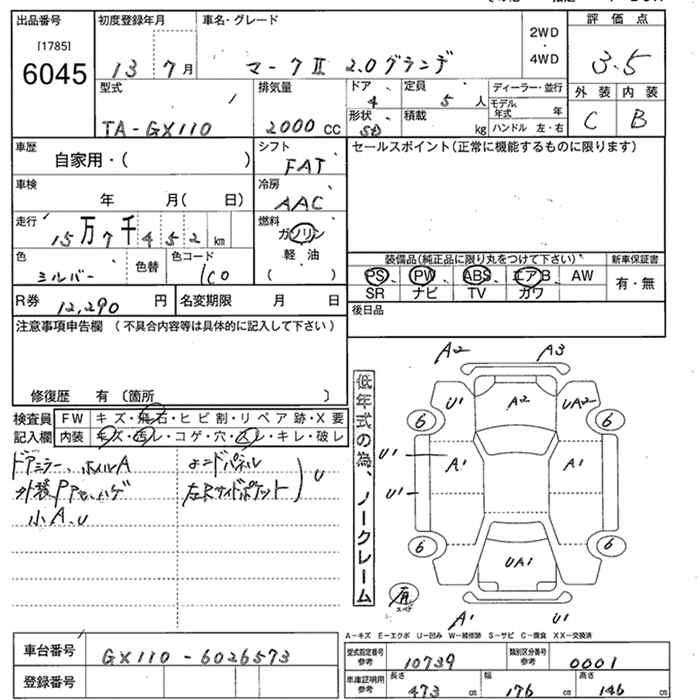 出品番号
[1785]
6045
初度登録年月
13 7月
車名・グレード
マークII 2.0グランデ
2WD
・
4WD
評価点
3.5
外装 内装
C B
型式
TA-GX110
排気量
2000 CC
ドア
4
定員
5 人
形状
SD
積載
kg
ディーラー・並行
モデル年式 年
ハンドル 左・右
車歴
自家用・( )
シフト
FAT
セールスポイント(正常に機能するものに限ります)
車検
年 月( 日)
冷房
AAC
走行
15万7千452km
燃料
ガソリン
軽油
( )
色
シルバー
色替
色コード
1C0
装備品(純正品に限り丸をつけて下さい)
新車保証書
PS PW ABS エアB AW
SR ナビ TV カワ
有・無
R券 12,290 円
名変期限 月 日
後日品
注意事項申告欄(不具合内容等は具体的に記入して下さい)
修復歴 有〔箇所 〕
検査員
記入欄
FW キズ・飛石・ヒビ割・リペア跡・X要
内装 キズ・汚レ・コゲ・穴・スレ・キレ・破レ
ドアミラー、ホイルA
外装
小A、U
左Rサイドポケット
U
低年式の為、ノークレーム
A2 A3
U1 A2 UA2
6 6
U1 A1 A1
U1
6 6
UA1
有
A1 U1
A-キズ E-エクボ U-凹み W-補修跡 S-サビ C-腐食 XX-交換済
車台番号
GX110-6026573
型式指定番号
参考
10739
類別区分番号
参考
0001
車庫証明用
参考
長さ 473 cm
幅 176 cm
高さ 146 cm